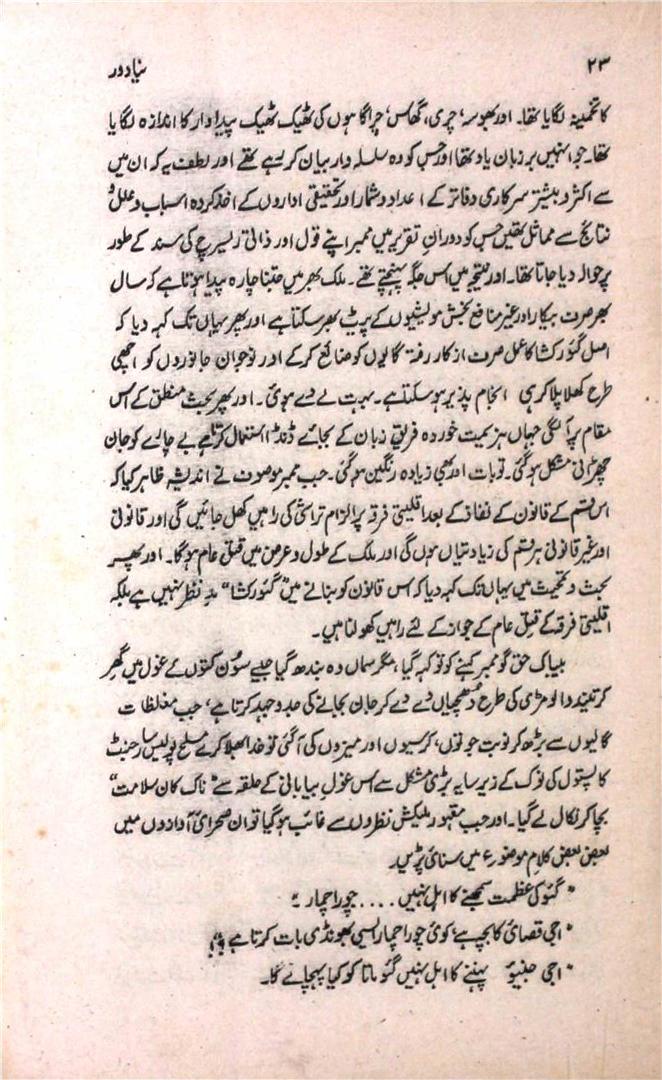 ۲۳ نیا دور
کا تخمینہ لگایا تھا۔ اور بھوسہ، چری، گھاس، چراگاہوں کی ٹھیک ٹھیک پیداوار کا اندازہ لگایا
تھا۔ جو انہیں بر زبان یاد تھا اور جس کو وہ سلسلہ وار بیان کر رہے تھے اور لطف یہ کہ ان میں
سے اکثر و بیشتر سرکاری دفاتر کے اعداد و شمار اور تحقیقی اداروں کے اخذ کردہ اسباب و علل و
نتائج سے مماثل تھیں جس کو دورانِ تقریر میں ممبر اپنے قول اور ذاتی ریسرچ کی سند کے طور
پر حوالہ دیا جاتا تھا۔ اور نتیجے میں اس جگہ پہنچتے تھے۔ ملک بھر میں جتنا چارہ پیدا ہوتا ہے کہ سال
بھر صرف بیکار اور غیر منافع بخش مویشیوں کے پیٹ بھر سکتا ہے اور پھر یہاں تک کہہ دیا کہ
اصل گئورکشا کا عمل صرف از کار رفتہ گایوں کو ضائع کر کے اور نوجوان جانوروں کو اچھی
طرح کھلا پلا کر ہی انجام پذیر ہو سکتا ہے۔ بہت لے دے ہوئی۔ اور پھر بحث منطق کے اس
مقام پر آ لگی جہاں ہزیمت خوردہ فریق زبان کے بجائے ڈنڈا استعمال کرتا ہے بے چارے کو جان
چھڑانی مشکل ہو گئی۔ تو بات اور بھی زیادہ رنگین ہو گئی۔ جب ممبر موصوف نے اندیشہ ظاہر کیا کہ
اس قسم کے قانون کے نفاذ کے بعد اقلیتی فرقہ پر الزام تراشی کی راہیں کھل جائیں گی اور قانونی
اور غیر قانونی ہر قسم کی زیادتیاں ہوں گی اور ملک کے طول و عرض میں قتلِ عام ہو گا۔ اور پھر
بحث و تمحیث میں یہاں تک کہہ دیا کہ اس قانون کو بنانے میں "گئورکشا" مدِ نظر نہیں ہے بلکہ
اقلیتی فرقہ کے قتلِ عام کے جواز کے لئے راہیں کھولنا ہیں۔
بیباک حق گو ممبر کہنے کو تو کہہ گیا، مگر سماں وہ بندھ گیا جیسے سؤن کتوں کے غول میں گھِر
کر تیندوا لومڑی کی طرح دُھمچیاں دے دے کر جان بچانے کی جد و جہد کرتا ہے، جب مغلظات
گالیوں سے بڑھ کر نوبت جوتوں، کرسیوں اور میزوں کی آ گئی تو خدا بھلا کرے مسلح پولیس سارجنٹ
کا پستول کی نوک کے زیرِ سایہ بڑی مشکل سے اس غولِ بیابانی کے حلقہ سے "ناک کان سلامت"
بچا کر نکال لے گیا۔ اور جب مقہور ملیکش نظروں سے غائب ہو گیا تو ان صحرائی آوازوں میں
بعض بعض کلامِ موضوع میں سنائی پڑیں۔
"گئو کی عظمت سمجھنے کا اہل نہیں .... چورا چمار۔"
"اجی قصائی کا بچہ ہے، کوئی چورا چمار ایسی بھونڈی بات کرتا ہے؟"
"اجی جنیئو پہننے کا اہل نہیں گئو ماتا کو کیا پہچانے گا۔